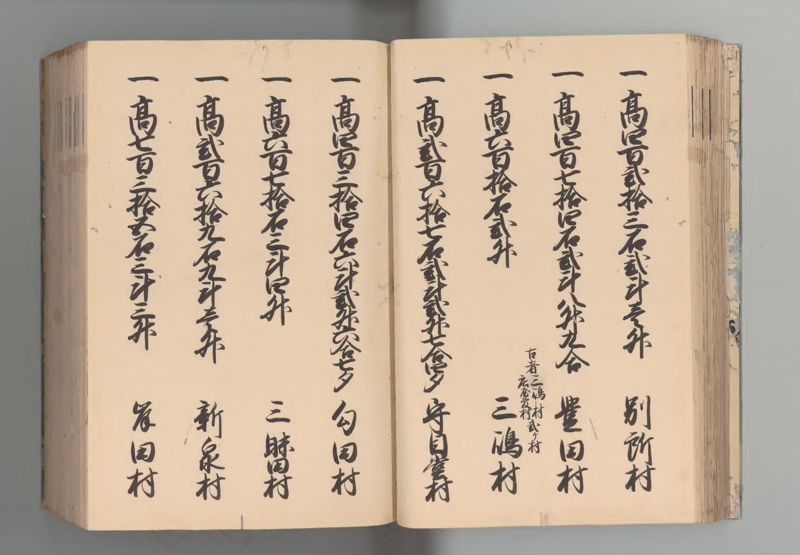 一高四百弐拾三石弐斗壱升 別所村
一高四百七拾四石弐斗八升九合 豊田村
古者三嶋村弐ヶ村
庄屋敷村
一高六百拾石弐升 三嶋村
一高弐百六拾七石弐斗弐升七合四夕 守目堂村
一高四百三拾四石六斗弐升六合七夕 勾田村
一高六百七拾石三斗四升 三昧田村
一高弐百六拾九石九斗壱升 新泉村
一高七百三拾五石三斗三升 岸田村